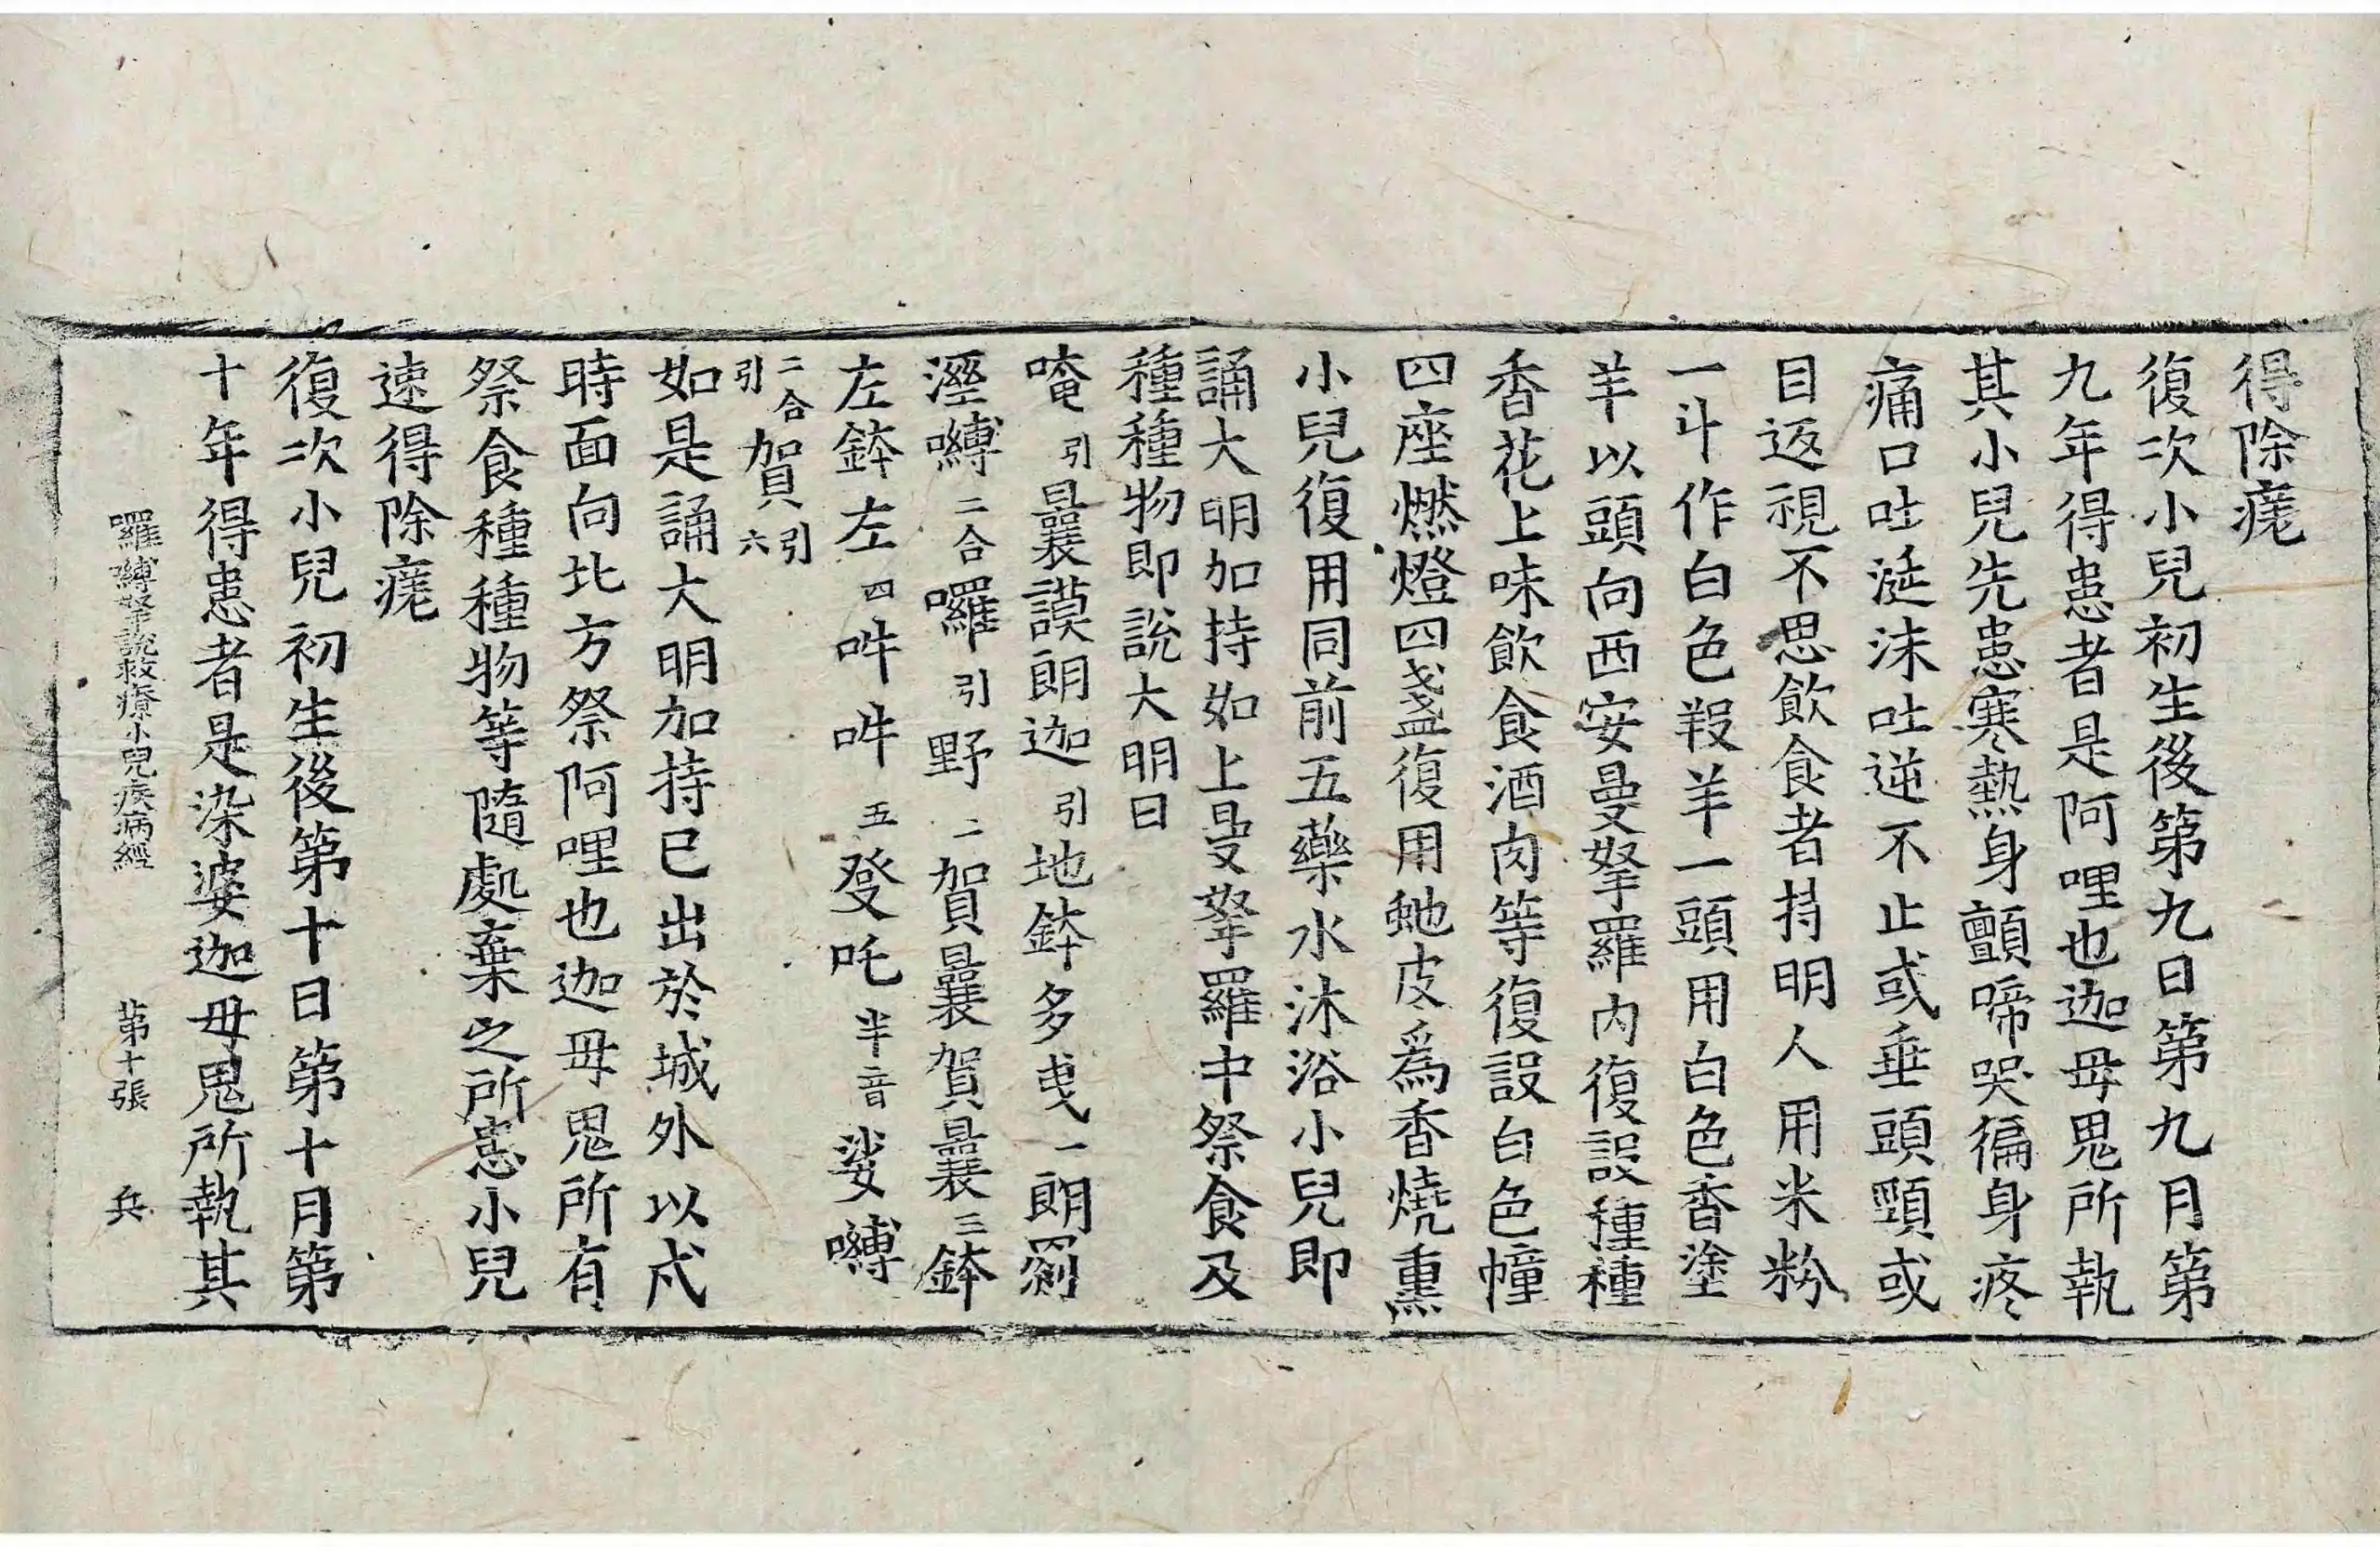 得除瘥
復次小兒初生後第九日第九月第
九年得患者是阿哩也迦毋鬼所執
其小兒先患寒熱身顫啼哭徧身疼
痛口吐涎沫吐逆不止或垂頭頸或
目返視不思飲食者持明人用米粉
一斗作白色羖羊一頭用白色香塗
羊以頭向西安曼拏羅內復設種種
香花上味飲食酒肉等復設白色幢
四座燃燈四盞復用虵皮爲香燒熏
小兒復用同前五藥水沐浴小兒即
誦大明加持如上曼拏羅中祭食及
種種物即說大明曰
唵引曩謨朗迦引地鉢多曳一朗罽
濕嚩二合囉引野二賀曩賀曩三鉢
左鉢左四吽吽五發吒半音娑嚩
二合引賀引六
如是誦大明加持已出於城外以戌
時面向北方祭阿哩也迦毋鬼所有
祭食種種物等隨處棄之所患小兒
速得除瘥
復次小兒初生後第十日第十月第
十年得患者是染婆迦毋鬼所執其
囉嚩拏說救療小兒疾病經 第十張 兵